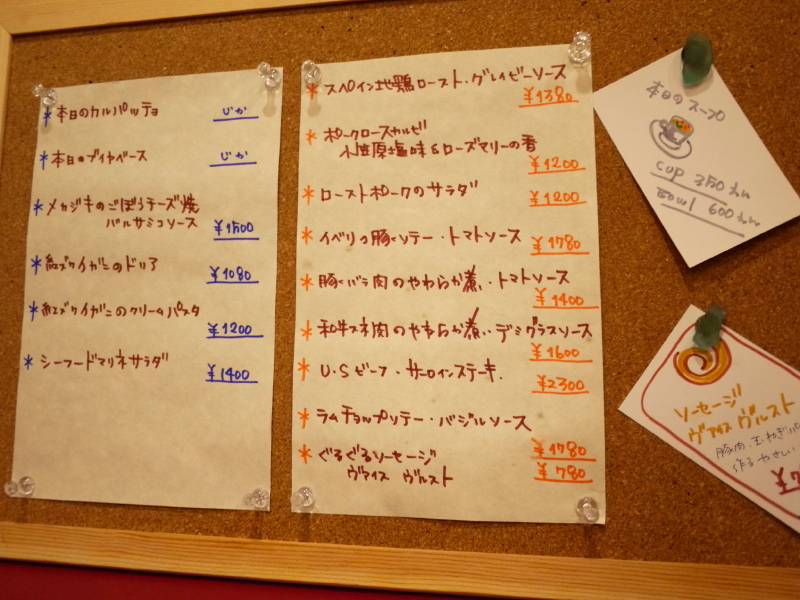 * 本日のカルパッチョ じか
* 本日のブイヤベース じか
* メカジキのごぼうチーズ焼
バルサミコソース ¥1500
* 紅ズワイガニのドリア ¥1080
* 紅ズワイガニのクリームパスタ ¥1200
* シーフードマリネサラダ ¥1400
* スペイン地鶏ロースト・グレイビーソース ¥1380
* ポークロースカルビ
小笠原塩味&ローズマリーの香 ¥1200
* ローストポークのサラダ ¥1200
* イベリコ豚ソテー・トマトソース ¥1780
* 豚バラ肉のやわらか煮・トマトソース ¥1400
* 和牛スネ肉のやわらか煮・デミグラスソース ¥1600
* U.Sビーフ・サーロインステーキ. ¥2300
* ラムチョップソテー・バジルソース ¥1780
* ぐるぐるソーセージ
ヴァイス ヴルスト ¥780
本日のスープ
cup 350
Bowl 600
ソーセージ
ヴァイス ヴルスト
豚肉・玉ねぎ
作るやさい
¥7